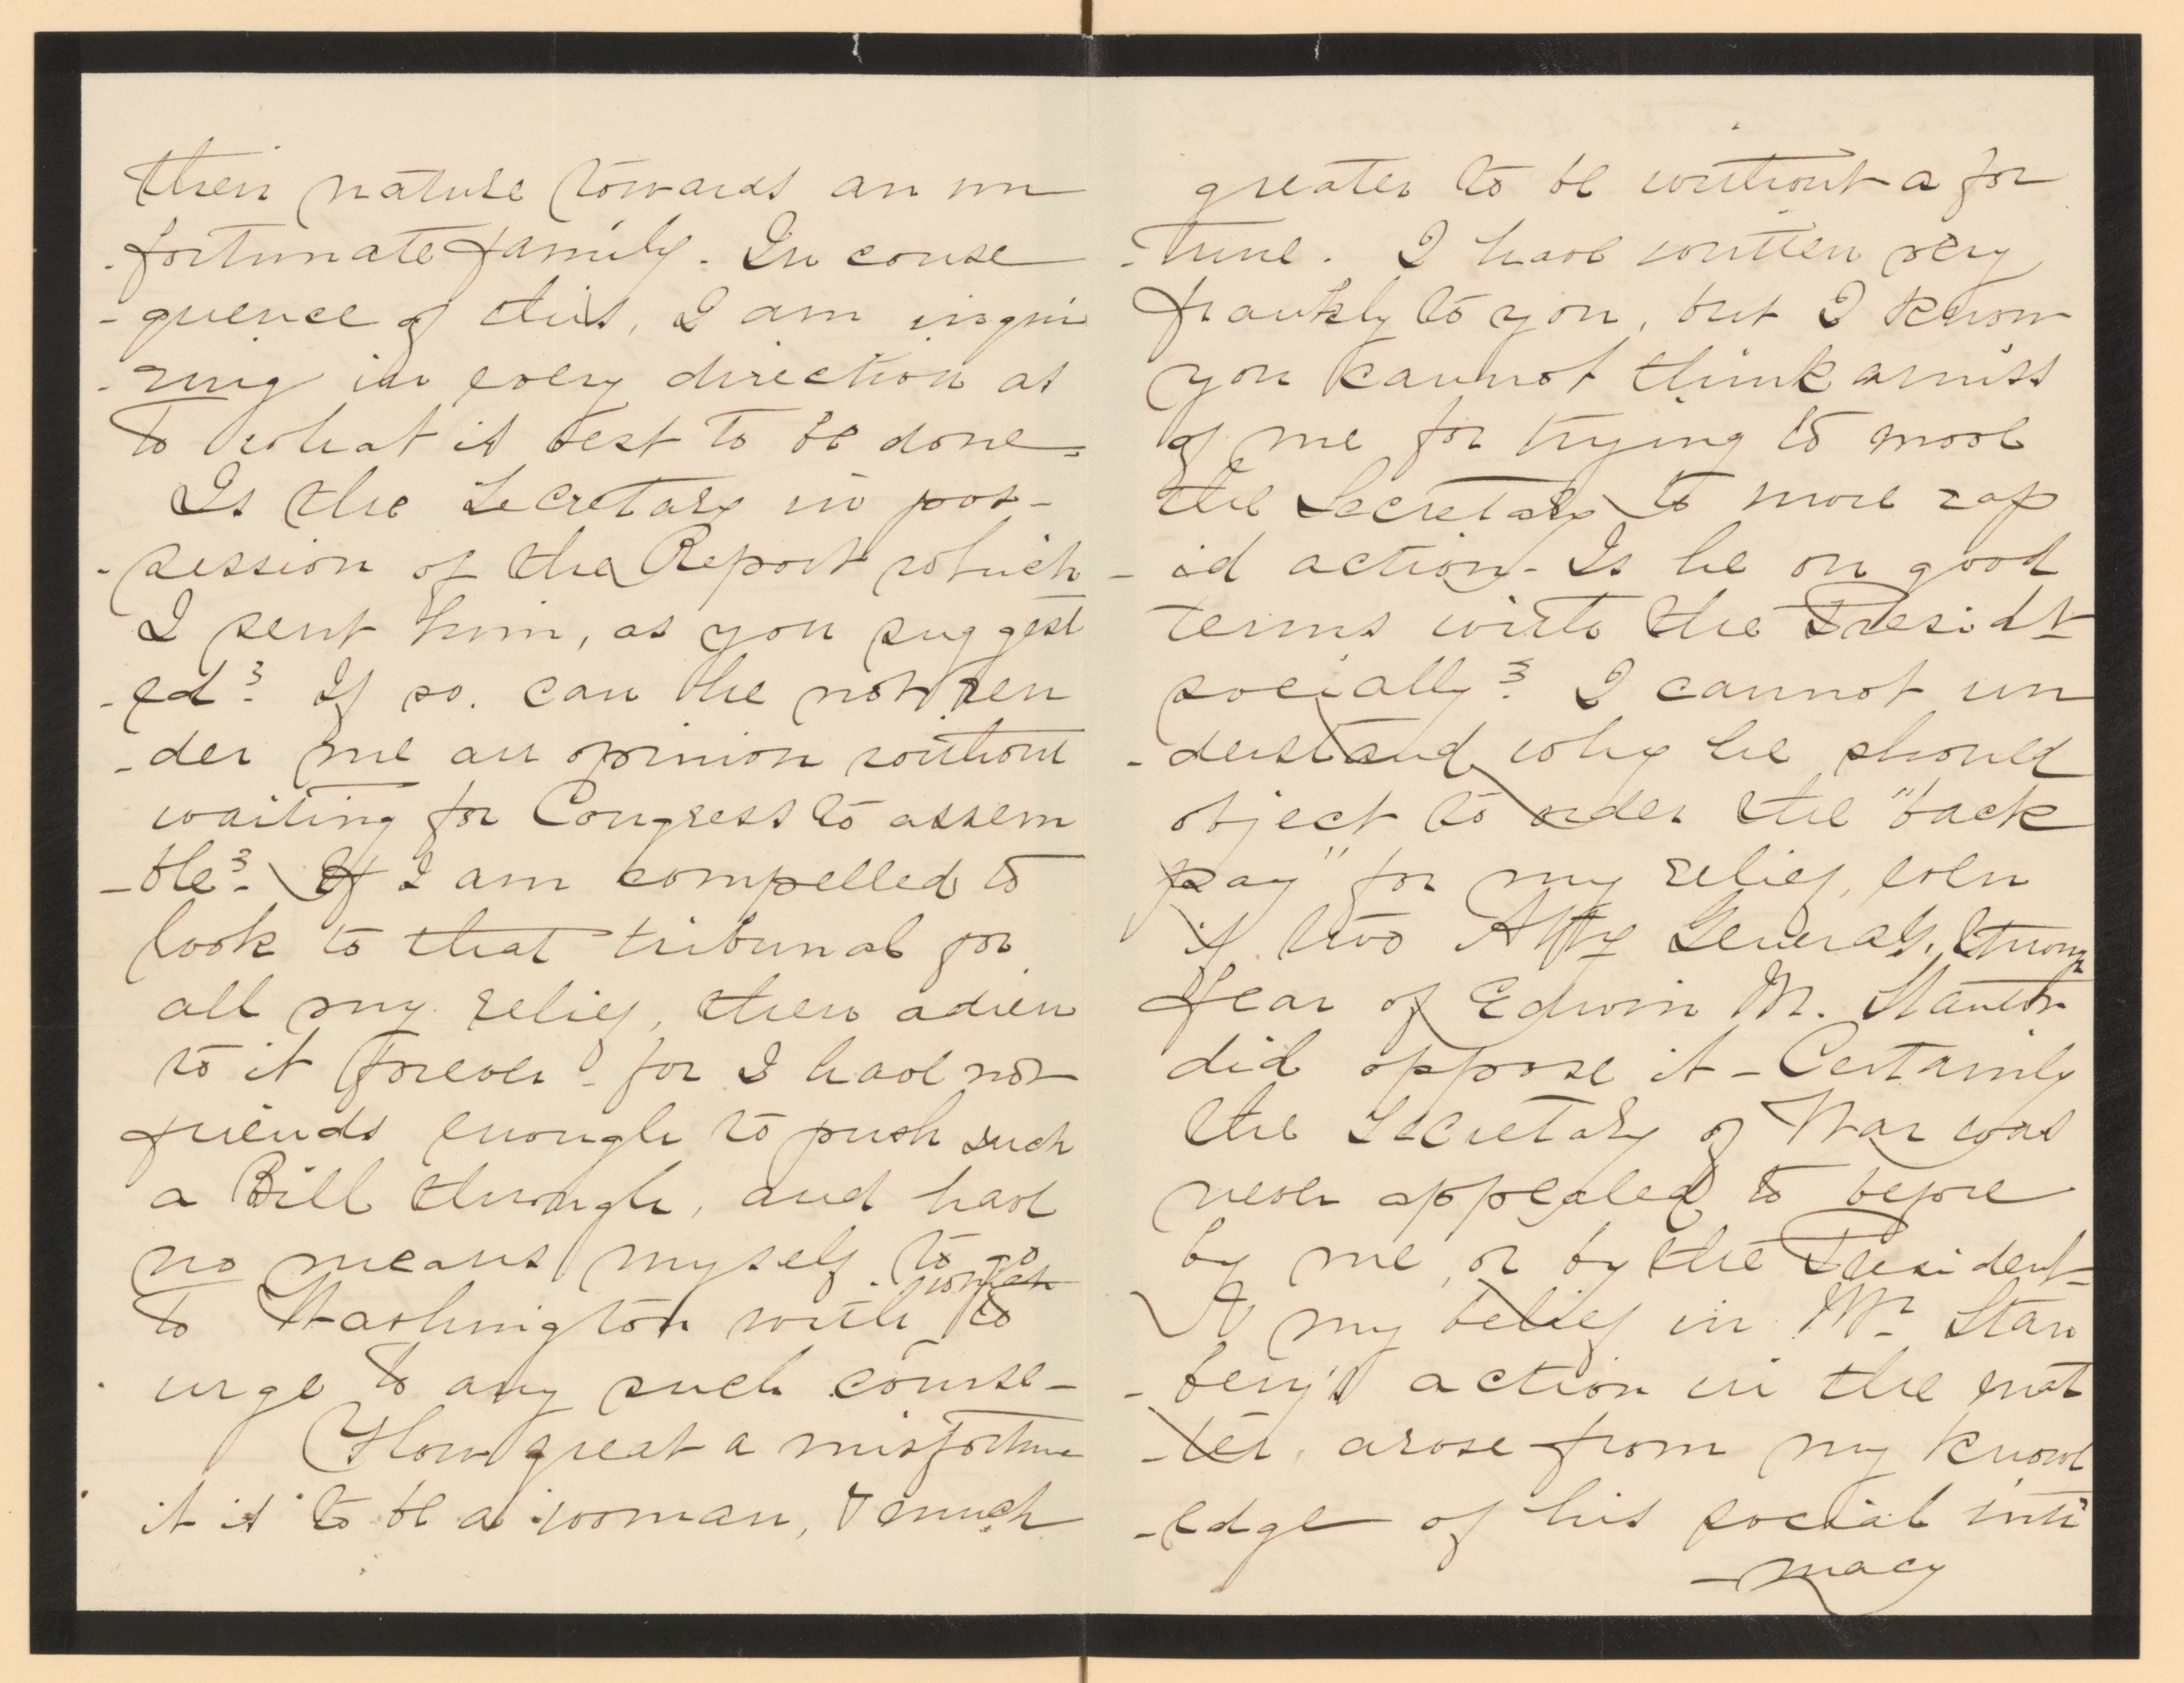 their nature towards an un
-fortunate family. In conse
-quence of this, I am inqui
-ring in every direction as
to what is best to be done=
Is the Secretary in pos-
-session of the Report which
I sent him, as you suggest
-ed? If so. can he not ren
-der me an opinion without
waiting for Congress to assem
-ble? If I am compelled to
look to that tribunal for
all my relief, then adieu
to it forever - for I have not
friends enough to push such
a Bill through, and have
no means myself to go
to Washington with to
urge to any such course-
How great a misfortune
it is to be a woman, & much
greater to be without a for
-tune. I have written very
frankly to you, but I know
you cannot think amiss
of me for trying to move
the Secretary to more rap
-id action- Is he on good
terms with the Presidt
socially? I cannot un
-derstand why he should
object to order the "back
pay" for my relief, even
if two Atty Generals, through
fear of Edwin M. Stanton
did oppose it - Certainly
the Secretary of War was
never appealed to before
by me, or by the President-
My belief in Mr. Stan
-bery's action in the mat
-ter, arose from my knowl
-edge of his social inti
-macy